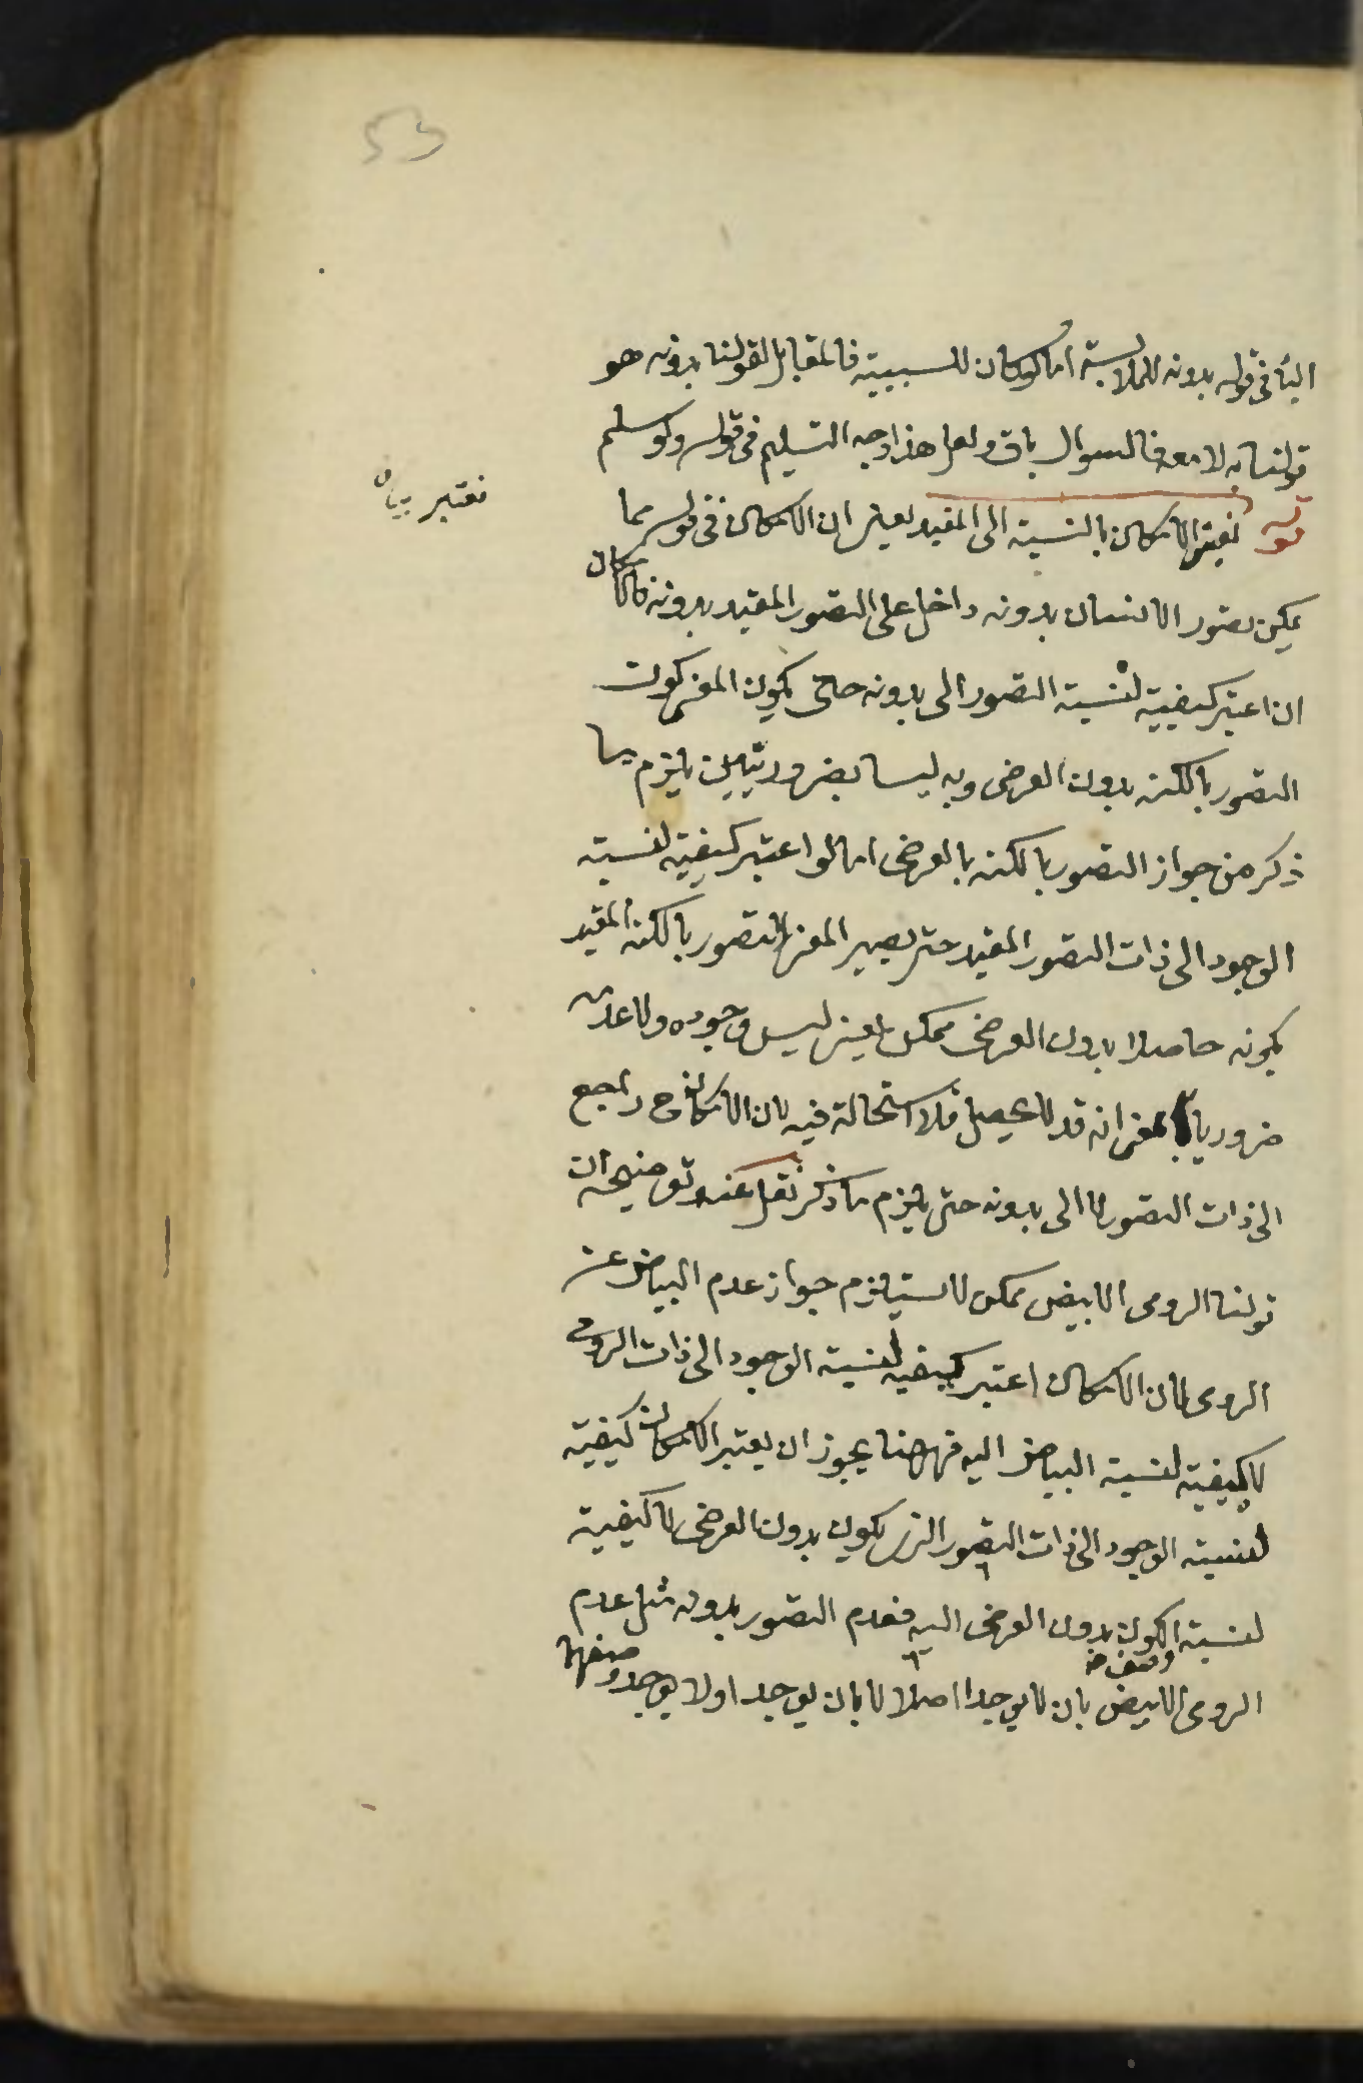 53
الباء في قوله بدونه للملابسة اما لو كان للسببية فالمقابل لقولنا بدونه هو
قولنا به لا معه فالسوال باق ولعل هذا وجه التسليم في قوله ولو سلم
قوله نعتبر الامكان بالنسبة الى المقيد يعنى ان الامكان في قوله مما
نعتبر بيان
يمكن تصور الانسان بدونه داخل على التصور المقيد بدونه فالامكان
ان اعتبر كيفية لنسبة التصور الى بدونه حتى يكون المعنى كون
التصور بالكنه بدون العرضى وبه ليسا بضروريتين يلزم ما
ذكر من جواز التصور بالكنه بالعرضى اما لو اعتبر كيفية لنسبة
الوجود الى ذات التصور المقيد حتى يصير المعنى التصور بالكنه المقيد
بكونه حاصلا بدون العرضى ممكن يعنى ليس وجوده ولا عدمه
ضروريا بمعنى انه قد لا يحصل فلا استحالة فيه لان الامكان ح راجع
الى ذات التصور لا الى بدونه حتى يلزم ما ذكر نقل عنه توضيحه ان
قولنا الرومى الابيض ممكن لا يستلزم جواز عدم البياض عن
الرومى لان الامكان اعتبر كيفية لنسبة الوجود الى ذات الرومى
لا كيفية لنسبة البياض اليه فههنا يجوز ان يعتبر الامكان كيفية
لنسبة الوجود الى ذات التصور الذى يكون بدون العرضى لا كيفية
لنسبة الكون بدون العرضى اليه فعدم التصور بدونه مثل عدم
الرومى الابيض بان لا يوجد اصلا لا بان يوجد اولا يوجد